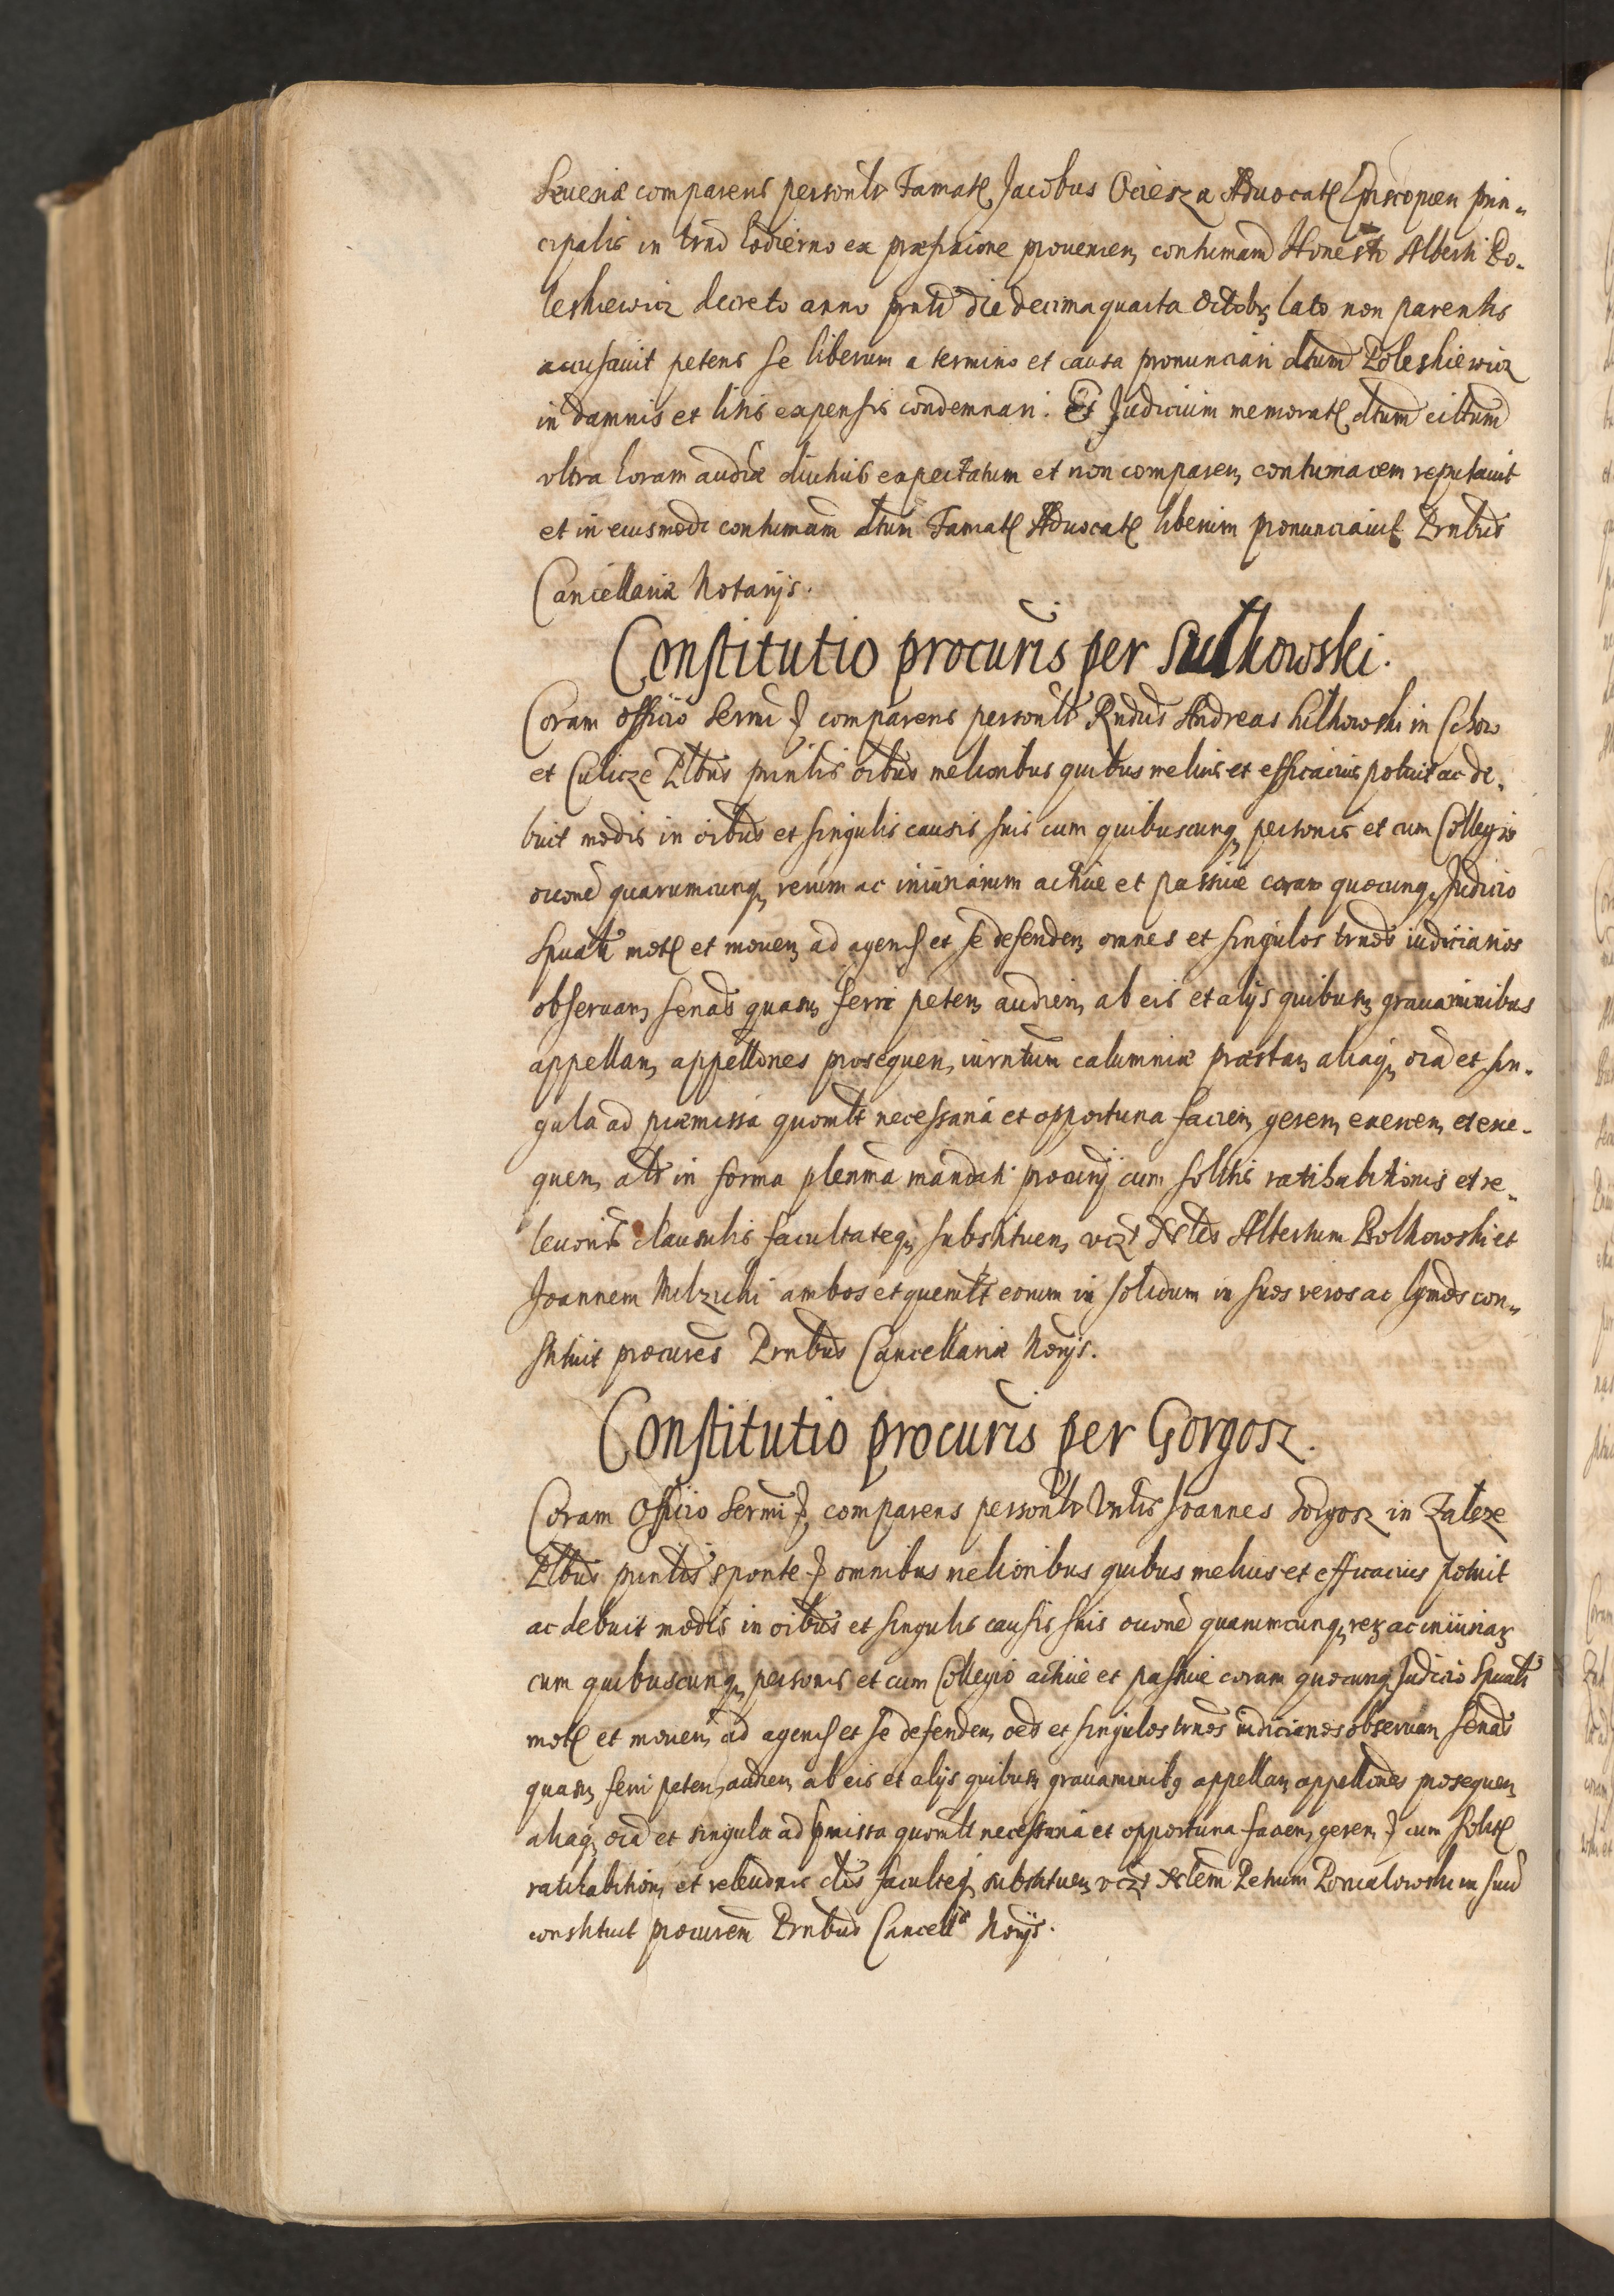 Seueriæ comparens personlr Famat Jacobus Ociesza Aduocat Episcopien prin„
cipalis in trno hodierno ex præfixione provenien, contumam Honesti Alberti Bo„
leskiewicz decreto anno prnti die decima quarta Octobr lato non parentis
accusauit petens se liberum a termino et causa pronunciari dtum Boleskiewicz
in damnis et litis expensis condemnari. Et Judicium memorat dtum cittum
vltra horam audiæ diutius expectatum et non comparen, contumacem reputauit
et in eiusmodi contumam dtum Famat Aduocat liberum pronunciauit Prntbus
Cancellariæ Notarijs.
Constitutio procuris per Sulkowski.
Coram Officio Sermi comparens personlr Rndus Andreas Sulkowski in
et Culicze Plbus prinlis oibus melioribus quibus melius et efficacius potuit ac de„
buit modis in oibus et singulis causis suis cum quibuscunq personis et cum Collegio
occone quarumcunq rerum ac iniuriarum actiue et passiue coram quocunq Judicio
Spuali mot et mouen, ad agend et se defenden, omnes et singulos trnos iudiciarios
obseruan, senas quasuis ferri peten, audien, ab eis et alijs quibusuis grauaminibus
appellan, appellones prosequen, iurntum calumniæ præstan, aliaq oia et sin„
gula ad præmissa quomlt necessaria et opportuna facien, geren, exercen, et exe„
quen, als in forma plenma mandati procurij cum solitis ratihabitionis et re„
leuonis clausulis facultateq substituen, vczt Nbles Albertum Bolkowski et
Joannem Milzicki ambos et quemlt eorum in solidum in suos veros ac lgmos con„
stituit procures Prntbus Cancellariæ Norijs.
Constitutio procuris per Gorgosz.
Coram Officio Sermi comparens personlr Vntis Joannes Gorgosz in Zaleze
Plbus prinlis sponte omnibus melioribus quibus melius et efficacius potuit
ac debuit modis in oibus et singulis causis suis occone quarumcunq rer ac iniuriar
cum quibuscunq personis et cum Collegio actiue et passiue coram quocunq Judicio Spuali
mot et mouen, ad agend et se defenden, oes et singulos trnos iudiciarios obseruan, senas
quasuis ferri peten, audien, ab eis et alijs quibusuis grauaminibq appellan, appellones prosequen,
aliaq oia et singula ad pmissa quomlt necessaria et opportuna facien, geren, cum solit
ratihabition, et releuonis clis facultq substituen, vczt Nblem Petrum in suu
constituit procurem Prntbus Cancellæ Norijs.